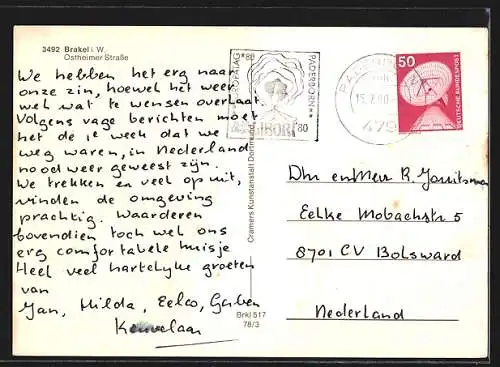 3492 Brakel i. W.
Ostheimer Straße
We hebben het erg naar
onze zin, hoewel het weer
wel wat te wensen overlaat.
Volgens vage berichten moet
het de 1e week dat we
weg waren, in Nederland
noodweer geweest zijn.
We trekken er veel op uit,
vinden de omgeving
prachtig. Waarderen
bovendien toch wel ons
erg comfortabele huisje
Heel veel hartelijke groeten
van
Jan, Hilda, Eelco, Gerben
Brkl 517
78/3
Cramers Kunstanstalt Dortmund
PADERBORN
LIBORI '80
479
50
DEUTSCHE BUNDESPOST
Dhr en Mevr R.
Eelke Mobachstr 5
8701 CV Bolsward
Nederland